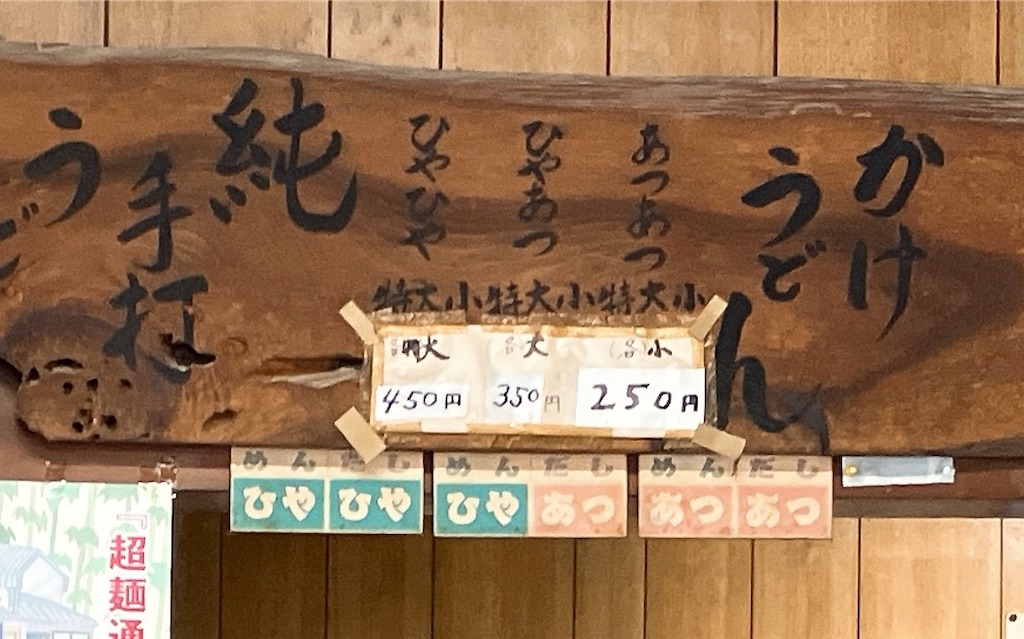 かけ
うどん
あつあつ
ひやあつ
ひやひや
純
手打
う
ど
特大小特大小特大小
各特大 各大 各小
450円 350円 250円
めん だし めん だし めん だし
ひや ひや ひや あつ あつ あつ
『超麺通